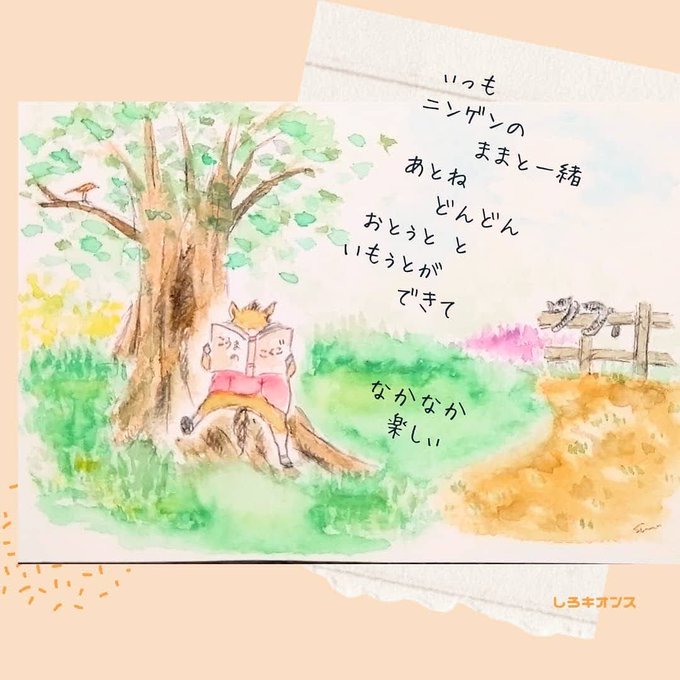 いつも
ニンゲンの
ままと一緒
あとね
どんどん
おとうと と
いもうとが
できて
なかなか
楽しい
こうまの
こくご
しろキオンス